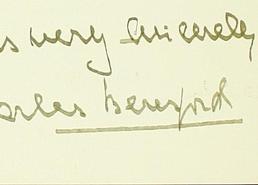 s very sincerely
arles Beresford